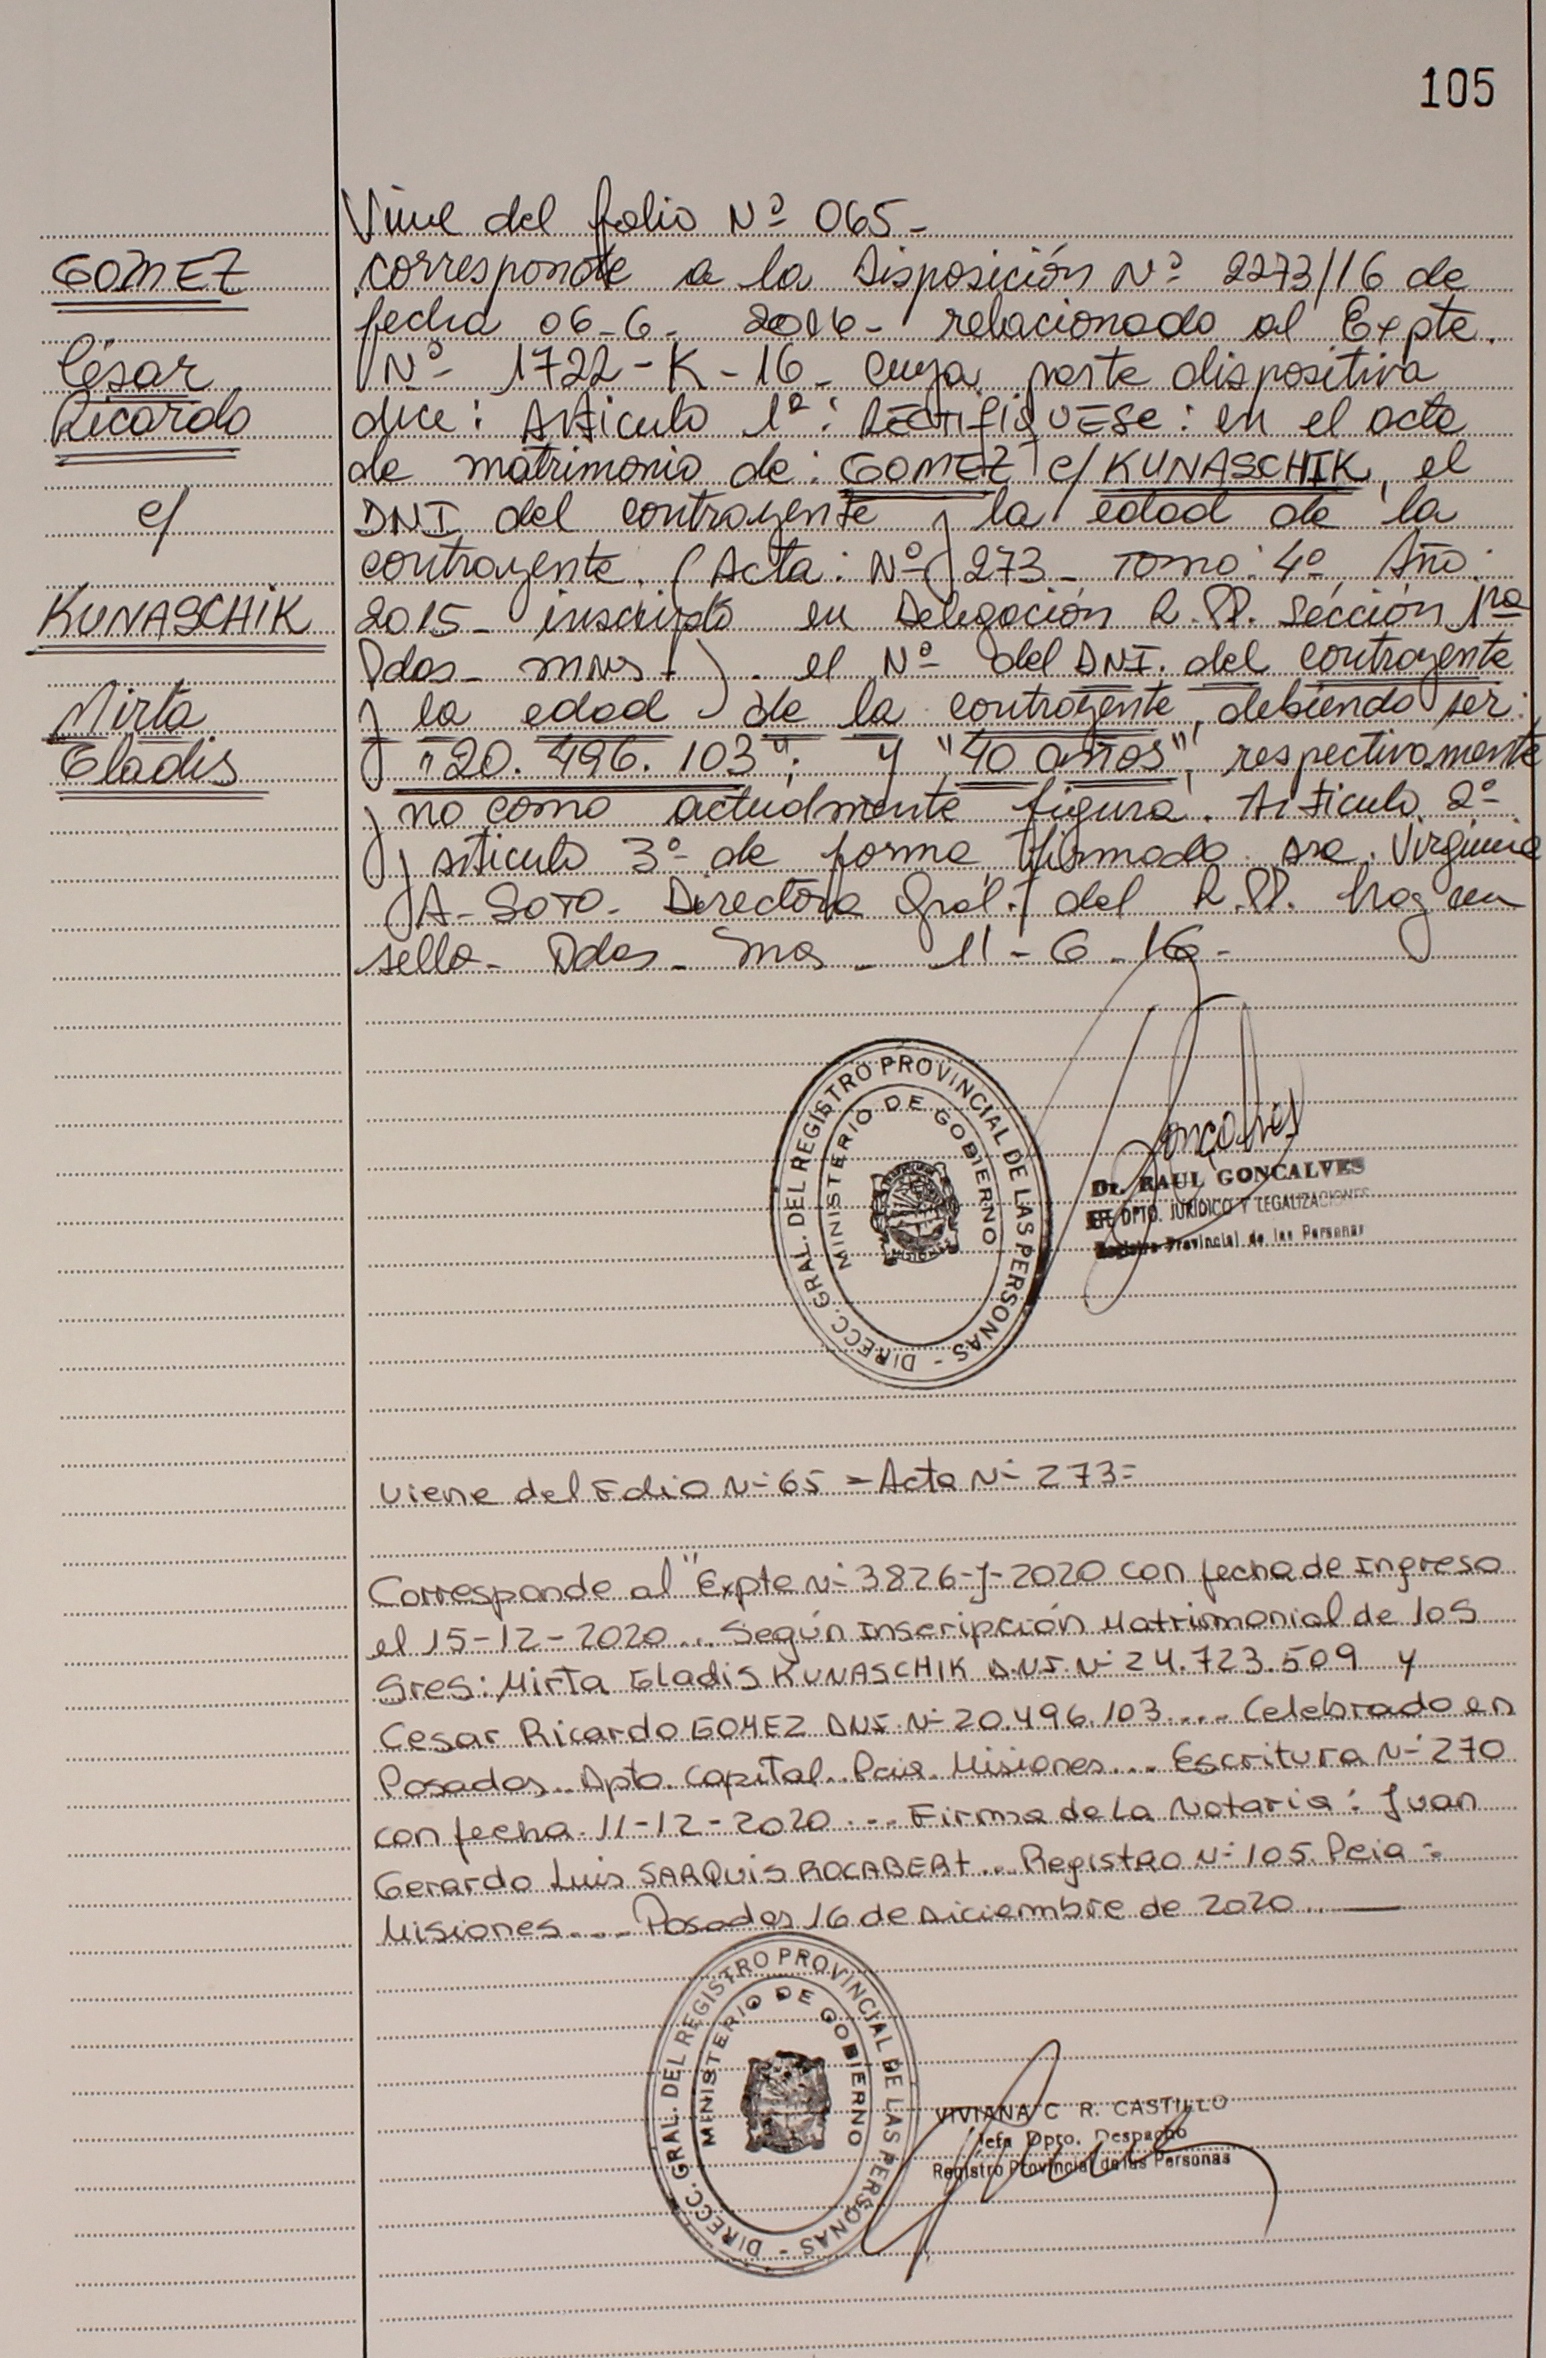 105
Viene del folio Nº 065-
GOMEZ
César
Ricardo
c/
KUNASCHIK
Mirta
Eladis
corresponde a la Disposición Nº 2273/16 de
fecha 06-6- 2016- relacionado al Expte.
Nº 1722-K-16- cuya parte dispositiva
dice: Articulo 1º: RECTIFIQUESE: en el acta
de matrimonio de: GOMEZ c/ KUNASCHIK, el
DNI del contrayente y la edad de la
contrayente. (Acta: Nº 273- Tomo: 4º Año:
2015- inscripto en Delegación R.PP. Sección 1ra
Pdas- mns). el Nº del DNI. del contrayente
y la edad de la contrayente, debiendo ser:
"20.496.103"; y "40 años", respectivamente
y no como actualmente figura. Articulo 2º
y articulo 3º de forma, firmado sra. Virginia
A- SOTO- Directora Gral. del R.PP. hay un
sello- Pdas- Mns- 11-6-16-
DIRECC. GRAL. DEL REGISTRO PROVINCIAL DE LAS PERSONAS -
MINISTERIO DE GOBIERNO
Dr. RAUL GONCALVES
DPTO. JURIDICO Y LEGALIZACIONES
Registro Provincial de las Personas
viene del Folio Nº 65 = Acta Nº 273=
Corresponde al "Expte Nº 3826-J-2020 con fecha de Ingreso
el 15-12-2020... Según Inscripción Matrimonial de los
Sres: Mirta Eladis KUNASCHIK D.N.I. Nº 24.723.509 y
Cesar Ricardo GOMEZ DNI. Nº 20.496.103.... Celebrado en
Posadas.. Dpto. Capital.. Pcia. Misiones.... Escritura Nº 270
con fecha 11-12-2020... Firma de La Notaria: Juan
Gerardo Luis SARQUIS ROCABERT... Registro Nº 105. Pcia =
Misiones.... Posadas 16 de Diciembre de 2020..
DIRECC. GRAL. DEL REGISTRO PROVINCIAL DE LAS PERSONAS -
MINISTERIO DE GOBIERNO
VIVIANA C R. CASTILLO
Jefa Dpto. Despacho
Registro Provincial de las Personas